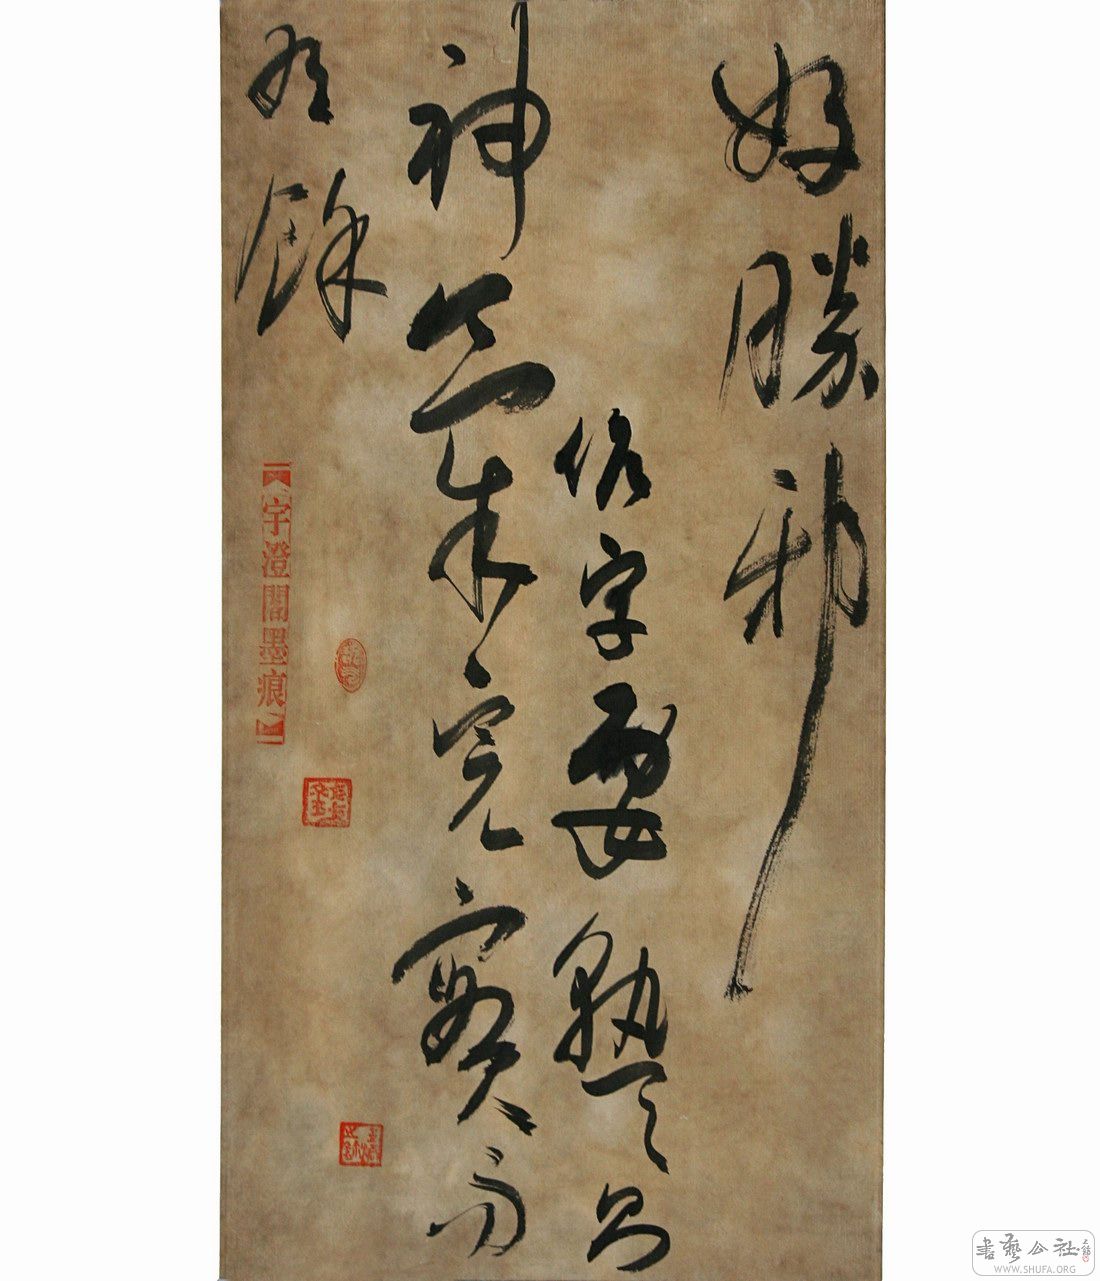 好勝邪
作字要熟々則
神氣完實而
有餘
宇澄閣墨痕
書藝公社
WWW.SHUFA.ORG